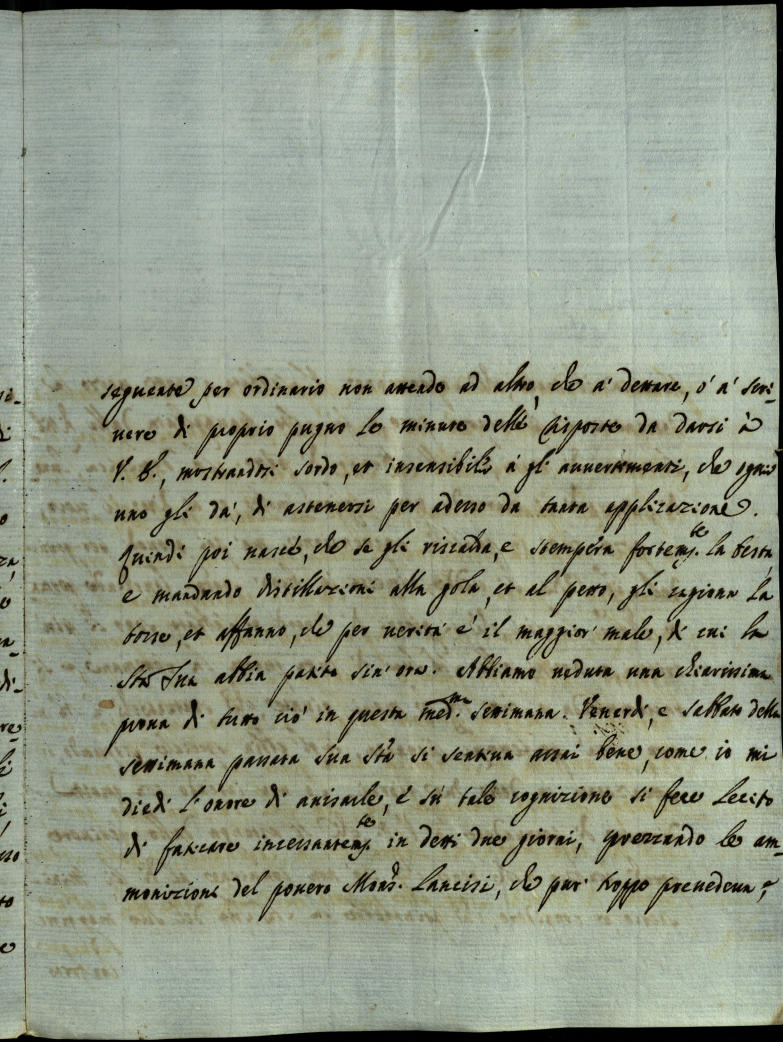 seguente per ordinario non attende ad altro, che a' dettare, o' a' scri-
uere di proprio pugno le minute delle risposte da darsi à
V. B., mostrandosi sordo, et insensibile à gli auuertimenti, che ogni
uno gli dà, di astenersi per adesso da tanta applicazione.
Quindi poi nasce, che se gli riscalda, e stempera fortem.te la testa
e mandando distillazioni alla gola, et al petto, gli cagiona la
tosse, et affanno, che per uerità è il maggior male, di cui la
Stà Sua abbia patito sin'ora. Abbiamo ueduta una chiarissima
proua di tutto ciò in questa med.ma settimana. Venerdì, e Sabbato della
settimana passata Sua Stà si sentiua assai bene, come io mi
diedi l'onore di auisarle, e sù tale cognizione si fece lecito
di faticare incessantem.te in detti due giorni, sprezzando le am-
monizioni del pouero Mons.r Lancisi, che pur troppo preuedeua,